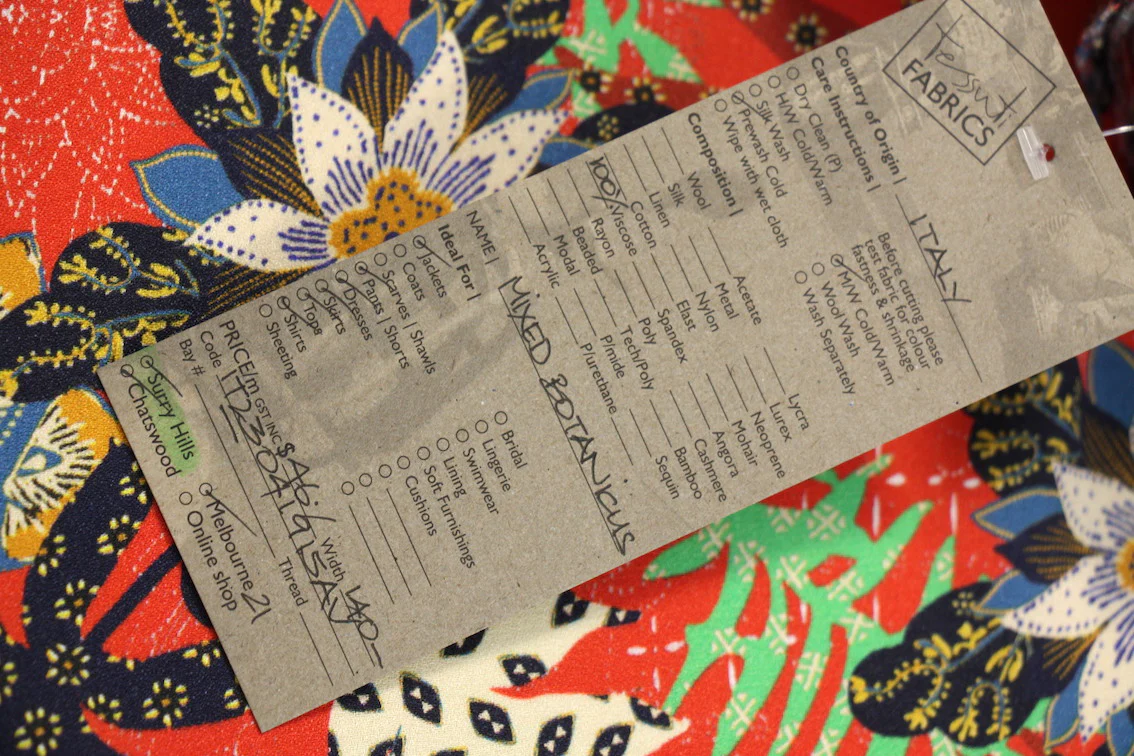 tessuti
FABRICS
Country of Origin | ITALY
Care Instructions |
Dry Clean (P)
H/W Cold/Warm
Silk Wash
Prewash Cold
Wipe with wet cloth
Before cutting please
test fabric for colour
fastness & shrinkage
M/W Cold/Warm
Wool Wash
Wash Separately
Composition |
Wool
Silk
Linen
Cotton
100% Viscose
Rayon
Beaded
Modal
Acrylic
Acetate
Metal
Nylon
Elast
Spandex
Poly
Tech/Poly
P/mide
P/urethane
Lycra
Lurex
Neoprene
Mohair
Angora
Cashmere
Bamboo
Sequin
NAME | MIXED BOTANICUS
Ideal For |
Jackets
Coats
Scarves | Shawls
Pants | Shorts
Dresses
Skirts
Tops
Shirts
Sheeting
Bridal
Lingerie
Swimwear
Lining
Soft Furnishings
Cushions
PRICE/m GST INC $ Width 140-
Code
Bay # Thread
Surry Hills
Chatswood
Melbourne 21
Online shop